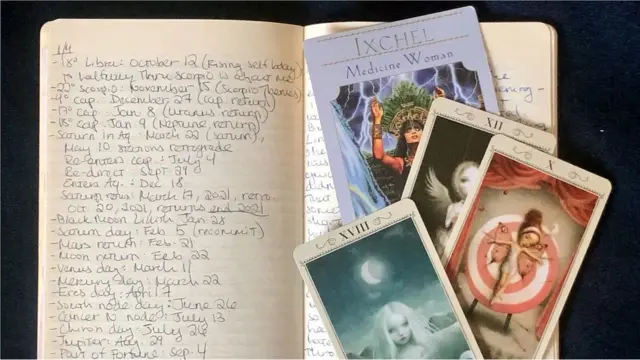 1/4
- 18° Libra: October 12 (Rising self today)
halfway thru Scorpio is exact
- 22° Scorpio: November 15 (Scorpio
- 4° cap: December 27 (cap return)
- 17° cap: Jan 8 (Uranus return)
- 18° cap: Jan 9 (Neptune return)
- Saturn in Aq: March 22 (saturn),
May 10 stations retrograde
Re-enters cap: July 4
Re-direct Sept 29
Enters Aq: Dec 18
Saturn: March 17, 2021, retro
Oct 20, 2021, returns end 2021
- Black Moon Lilith Jan 28
- Saturn day: Feb 5 (recommit)
- Mars return: Feb 21
- Moon return: Feb 22
- Venus day: March 11
- Mercury day: March 22
- Eres day: April 7
- South node day: June 26
- Cancer N node: July 13
- Chiron day: July 26
- Jupiter: Aug 29
- Part of Fortune: sep. 4
IXCHEL
Medicine Woman
XII
X
XVIII